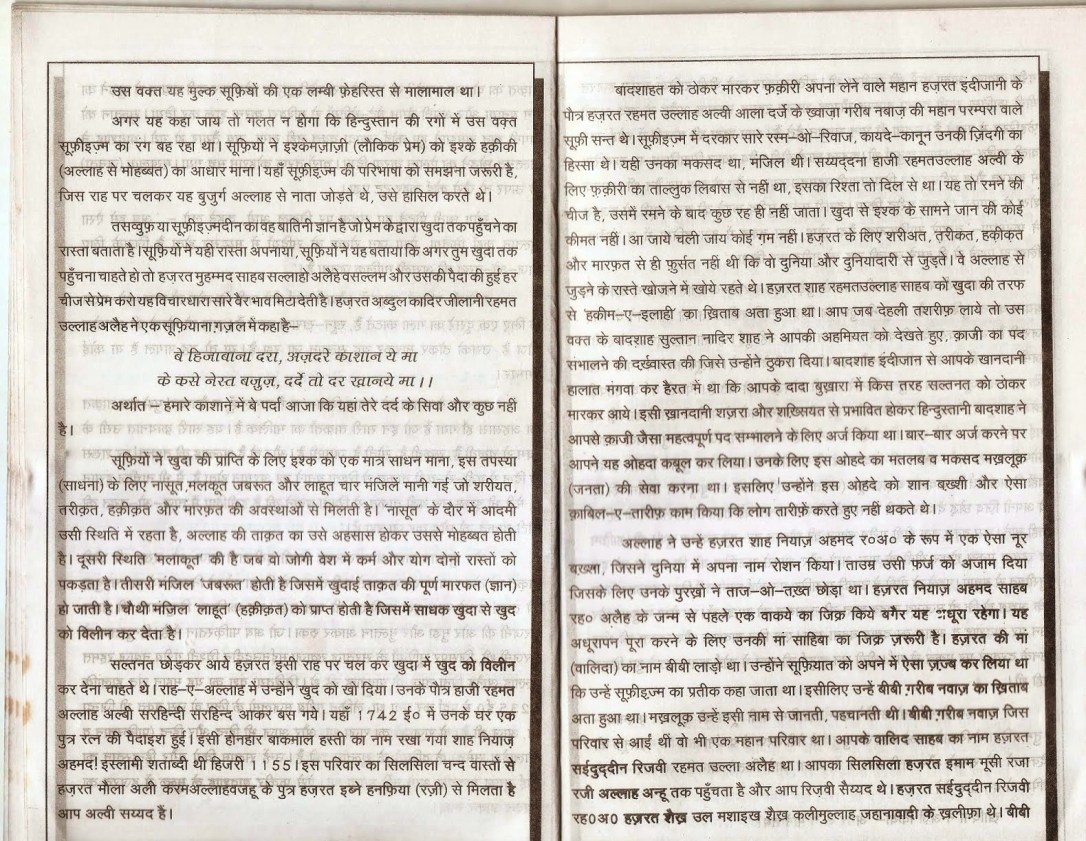 उस वक्त यह मुल्क सूफ़ियों की एक लम्बी फ़ेहरिस्त से मालामाल था।
अगर यह कहा जाय तो गलत न होगा कि हिन्दुस्तान की रगों में उस वक़्त
सूफ़ीइज़्म का रंग बह रहा था। सूफ़ियों ने इश्केमज़ाज़ी (लौकिक प्रेम) को इश्के हक़ीकी
(अल्लाह से मोहब्बत) का आधार माना। यहाँ सूफ़ीइज्म की परिभाषा को समझना जरूरी है,
जिस राह पर चलकर यह बुजुर्ग अल्लाह से नाता जोड़ते थे, उसे हासिल करते थे।
तसव्वुफ़ या सूफ़ीइज़्म दीन का वह बातिनी ज्ञान है जो प्रेम के द्वारा खुदा तक पहुँचने का
रास्ता बताता है। सूफ़ियों ने यही रास्ता अपनाया, सूफ़ियों ने यह बताया कि अगर तुम खुदा तक
पहुँचना चाहते हो तो हजरत मुहम्मद साहब सल्लाहो अलैहे वसल्लम और उसकी पैदा की हुई हर
चीज से प्रेम करो यह विचारधारा सारे बैर भाव मिटा देती है। हजरत अब्दुल कादिर जीलानी रहमत
उल्लाह अलैह ने एक सूफ़ियाना ग़ज़ल में कहा है–
बे हिजाबाना दरा, अज़दरे काशान ये मा
के कसे नेस्त बजुज़, दर्दे तो दर ख़ानये मा।।
अर्थात – हमारे काशाने में बे पर्दा आजा कि यहां तेरे दर्द के सिवा और कुछ नहीं
है।
सूफ़ियों ने खुदा की प्राप्ति के लिए इश्क को एक मात्र साधन माना, इस तपस्या
(साधना) के लिए नासूत,मलकूत जबरूत और लाहूत चार मंजिलें मानी गई जो शरीयत,
तरीक़त, हक़ीक़त और मारफ़त की अवस्थाओं से मिलती है। 'नासूत' के दौर में आदमी
उसी स्थिति में रहता है, अल्लाह की ताक़त का उसे अहसास होकर उससे मोहब्बत होती
है। दूसरी स्थिति 'मलाकूत' की है जब वो जोगी वेश में कर्म और योग दोनों रास्तों को
पकड़ता है। तीसरी मंजिल 'जबरूत' होती है जिसमें खुदाई ताक़त की पूर्ण मारफत (ज्ञान)
हो जाती है। चौथी मंजिल 'लाहूत' (हक़ीक़त) को प्राप्त होती है जिसमें साधक खुदा से खुद
को विलीन कर देता है।
सल्तनत छोड़कर आये हज़रत इसी राह पर चल कर खुदा में खुद को विलीन
कर देना चाहते थे। राह–ए–अल्लाह में उन्होंने खुद को खो दिया। उनके पौत्र हाजी रहमत
अल्लाह अल्वी सरहिन्दी सरहिन्द आकर बस गये। यहाँ 1742 ई० में उनके घर एक
पुत्र रत्न की पैदाइश हुई। इसी होनहार बाकमाल हस्ती का नाम रखा गया शाह नियाज़
अहमद! इस्लामी शताब्दी थी हिजरी 1155। इस परिवार का सिलसिला चन्द वास्तों से
हज़रत मौला अली करमअल्लाहवजहू के पुत्र हज़रत इब्ने हनफ़िया (रज़ी) से मिलता है
आप अल्वी सय्यद है।
बादशाहत को ठोकर मारकर फ़क़ीरी अपना लेने वाले महान हज़रत इंदीजानी के
पौत्र हज़रत रहमत उल्लाह अल्वी आला दर्जे के ख़्वाज़ा गरीब नबाज़ की महान परम्परा वाले
सूफ़ी सन्त थे। सूफ़ीइज़्म में दरकार सारे रस्म–ओ–रिवाज, कायदे–कानून उनकी ज़िंदगी का
हिस्सा थे। यही उनका मकसद था, मंजिल थीं। सय्यद्दना हाजी रहमतउल्लाह अल्वी के
लिए फ़क़ीरी का ताल्लुक लिबास से नहीं था, इसका रिश्ता तो दिल से था। यह तो रमने की
चीज है, उसमें रमने के बाद कुछ रह ही नहीं जाता। खुदा से इश्क के सामने जान की कोई
कीमत नहीं। आ जाये चली जाय कोई गम नहीं। हज़रत के लिए शरीअत, तरीकत, हक़ीकत
और मारफ़त से ही फुर्सत नहीं थी कि वो दुनिया और दुनियादारी से जुड़ते। वे अल्लाह से
जुड़ने के रास्ते खोजने में खोये रहते थे। हज़रत शाह रहमतउल्लाह साहब को खुदा की तरफ
से 'हकीम–ए–इलाही' का ख़िताब अता हुआ था। आप जब देहली तशरीफ़ लाये तो उस
वक्त के बादशाह सुल्तान नादिर शाह ने आपकी अहमियत को देखते हुए, क़ाजी का पद
संभालने की दर्ख़्वास्त की जिसे उन्होंने ठुकरा दिया। बादशाह इंदीजान से आपके खानदानी
हालात मंगवा कर हैरत में था कि आपके दादा बुख़ारा में किस तरह सल्तनत को ठोकर
मारकर आये। इसी ख़ानदानी शज़रा और शख़्सियत से प्रभावित होकर हिन्दुस्तानी बादशाह ने
आपसे क़ाजी जैसा महत्वपूर्ण पद सम्भालने के लिए अर्ज किया था। बार–बार अर्ज करने पर
आपने यह ओहदा कबूल कर लिया। उनके लिए इस ओहदे का मतलब व मकसद मख़लूक़
(जनता) की सेवा करना था। इसलिए उन्होंने इस ओहदे को शान बख़्शी और ऐसा
क़ाबिल–ए–तारीफ़ काम किया कि लोग तारीफ़े करते हुए नहीं थकते थे।
अल्लाह ने उन्हें हज़रत शाह नियाज़ अहमद र०अ० के रूप में एक ऐसा नूर
बख़्शा, जिसने दुनिया में अपना नाम रोशन किया। ताउम्र उसी फर्ज को अंजाम दिया
जिसके लिए उनके पुरखों ने ताज–ओ–तख़्त छोड़ा था। हज़रत नियाज़ अहमद साहब
रह० अलैह के जन्म से पहले एक वाकये का जिक्र किये बगैर यह अधूरा रहेगा। यह
अधूरापन पूरा करने के लिए उनकी मां साहिबा का जिक्र ज़रूरी है। हज़रत की मां
(वालिदा) का नाम बीबी लाडो़ था। उन्होंने सूफ़ियात को अपने में ऐसा ज़ज्ब कर लिया था
कि उन्हें सूफ़ीइज़्म का प्रतीक कहा जाता था। इसीलिए उन्हें बीबी ग़रीब नवाज़ का ख़िताब
अता हुआ था। मख़लूक़ उन्हें इसी नाम से जानती, पहचानती थी। बीबी ग़रीब नवाज़ जिस
परिवार से आईं थीं वो भी एक महान परिवार था। आपके वालिद साहब का नाम हज़रत
सईदुद्दीन रिजवी रहमत उल्ला अलैह था। आपका सिलसिला हज़रत इमाम मूसी रजा
रजी अल्लाह अन्हू तक पहुँचता है और आप रिज़वी सैय्यद थे। हज़रत सईदुद्दीन रिजवी
रह०अ० हज़रत शैख़ उल मशाइख शैख़ कलीमुल्लाह जहानावादी के ख़लीफ़ा थे। बीबी